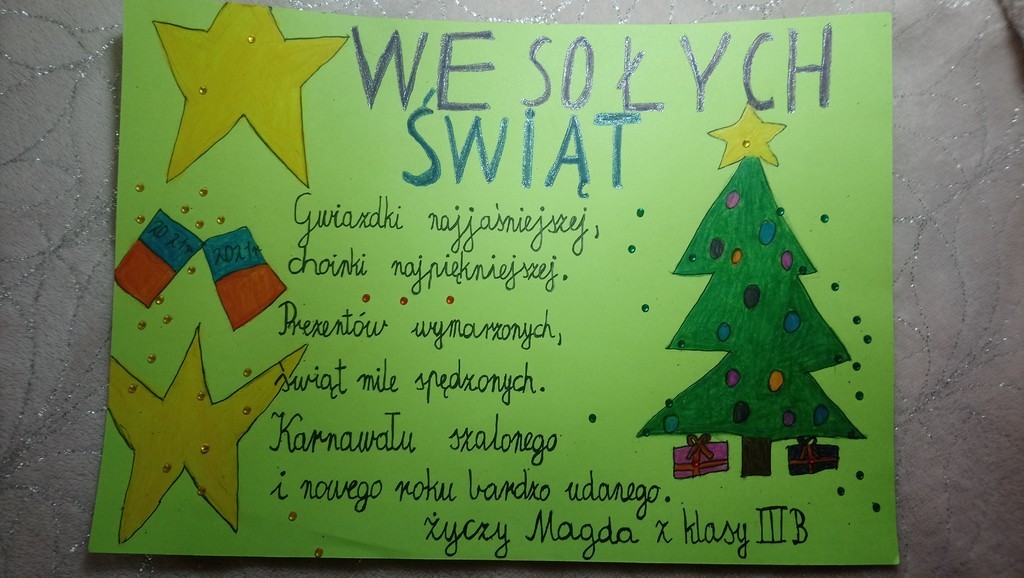 WESOŁYCH
ŚWIĄT
Gwiazdki najjaśniejszej,
choinki najpiękniejszej.
2021r
2021r
Prezentów wymarzonych,
świąt mile spędzonych.
Karnawału szalonego
i nowego roku bardzo udanego.
życzy Magda z klasy III B